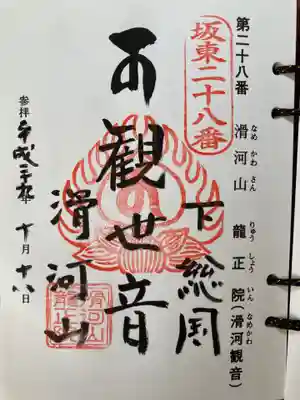 第二十八番 滑河山 龍正院(滑河観音)
なめ かわ さん りゅう しょう いん なめかわ
坂東二十八番
下総国
観世音
滑河山
参拝 平成二十九年 十月 十八日